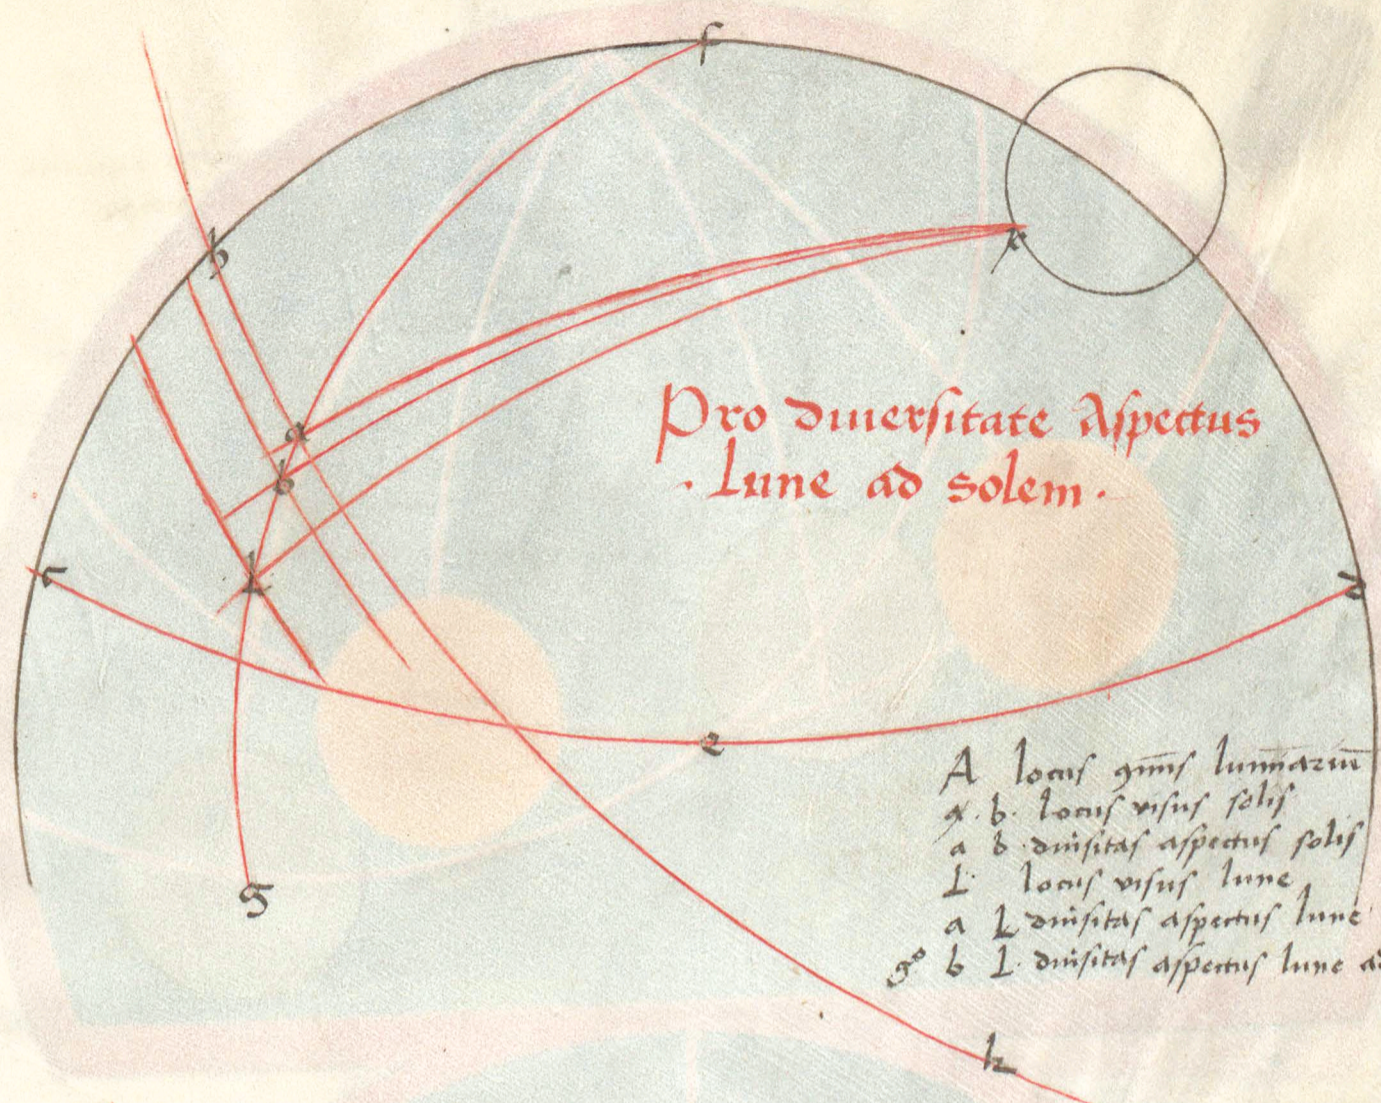 f
h
k
a
b
Pro diuersitate Aspectus
· Lune ad solem ·
L
c
d
e
A locus 9iu̅s luminariu̅
b. locus visus solis
a b diu'sitas aspectus solis
L locus visus lune
a L diu'sitas aspectus lune
g° b L diu'sitas aspectus lune ad
g
k